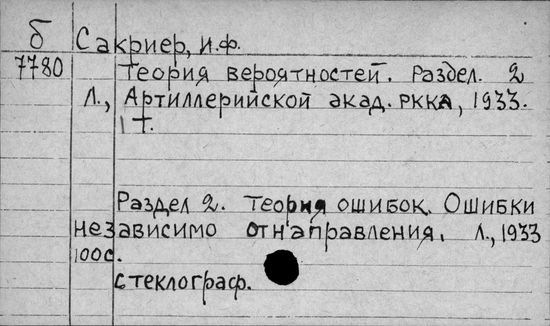 б Сакриер, И.Ф.
7780 Теория вероятностей. Раздел. 2
Л., Артиллерийской акад. РККА, 1933.
1 т.
Раздел 2. Теория ошибок. Ошибки
независимо от направления. Л., 1933
100с.
стеклограф.